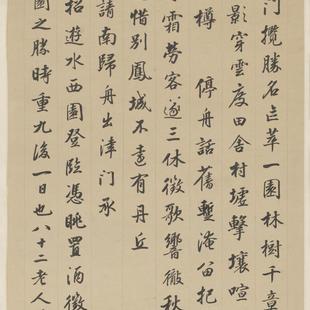 門攬勝名亦萃一園林樹千章
影穿雲度田舍村墟擊壤喧
樽 停舟話舊蹔淹留把
霜勞客遂三休徵歌響徹秋
惜別鳳城不遠有丹丘
請南歸舟出津門承
招遊水西園登臨憑眺置酒徵
園之勝時重九後一日也八十二老人